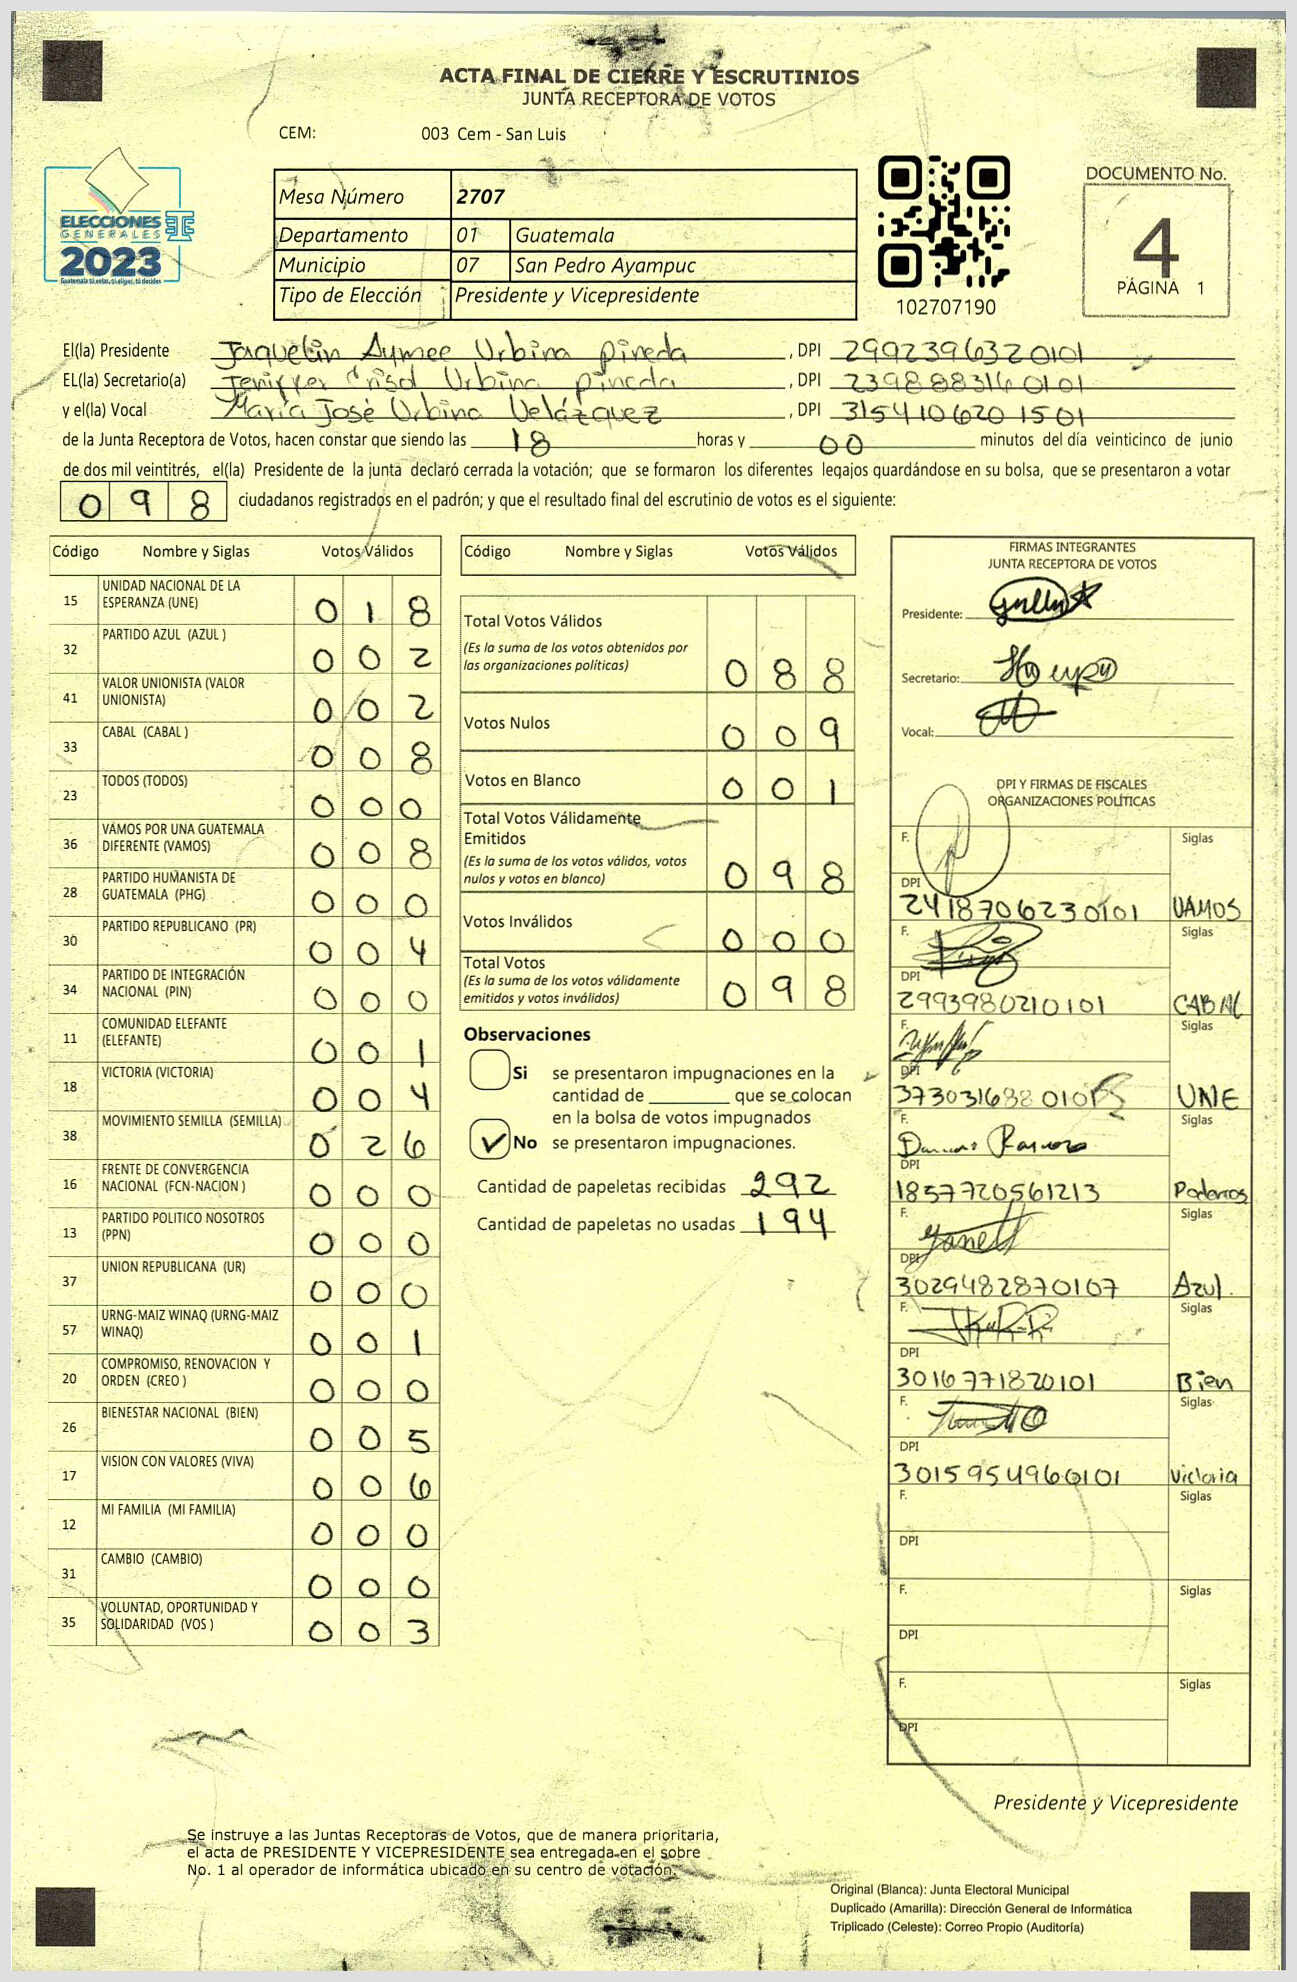 ACTA FINAL DE CIERRE Y ESCRUTINIOS
JUNTA RECEPTORA DE VOTOS
CEM: 003 Cem - San Luis
ELECCIONES
GENERALES
2023
Mesa Número 2707
Departamento 01 Guatemala
Municipio 07 San Pedro Ayampuc
Tipo de Elección Presidente y Vicepresidente
102707190
DOCUMENTO No.
4
PÁGINA 1
El(la) Presidente Jaquelin Aymee Urbina Pineda, DPI 2992396320101
EL(la) Secretario(a) Jeniffer Crisol Urbina Pineda, DPI 2398883160101
y el(la) Vocal María José Urbina Velázquez, DPI 3154106201501
de la Junta Receptora de Votos, hacen constar que siendo las 18 horas y 00 minutos del día veinticinco de junio
de dos mil veintitrés, el(la) Presidente de la junta declaró cerrada la votación; que se formaron los diferentes legajos quardándose en su bolsa, que se presentaron a votar
098 ciudadanos registrados en el padrón; y que el resultado final del escrutinio de votos es el siguiente:
Código Nombre y Siglas Votos Válidos
15 UNIDAD NACIONAL DE LA ESPERANZA (UNE) 018
32 PARTIDO AZUL (AZUL ) 002
41 VALOR UNIONISTA (VALOR UNIONISTA) 002
33 CABAL (CABAL ) 008
23 TODOS (TODOS) 000
36 VAMOS POR UNA GUATEMALA DIFERENTE (VAMOS) 008
28 PARTIDO HUMANISTA DE GUATEMALA (PHG) 000
30 PARTIDO REPUBLICANO (PR) 004
34 PARTIDO DE INTEGRACIÓN NACIONAL (PIN) 000
11 COMUNIDAD ELEFANTE (ELEFANTE) 001
18 VICTORIA (VICTORIA) 004
38 MOVIMIENTO SEMILLA (SEMILLA) 026
16 FRENTE DE CONVERGENCIA NACIONAL (FCN-NACION ) 000
13 PARTIDO POLITICO NOSOTROS (PPN) 000
37 UNION REPUBLICANA (UR) 000
57 URNG-MAIZ WINAQ (URNG-MAIZ WINAQ) 001
20 COMPROMISO, RENOVACION Y ORDEN (CREO ) 000
26 BIENESTAR NACIONAL (BIEN) 005
17 VISION CON VALORES (VIVA) 006
12 MI FAMILIA (MI FAMILIA) 000
31 CAMBIO (CAMBIO) 000
35 VOLUNTAD, OPORTUNIDAD Y SOLIDARIDAD (VOS ) 003
Código Nombre y Siglas Votos Válidos
Total Votos Válidos 088
(Es la suma de los votos obtenidos por
las organizaciones políticas)
Votos Nulos 009
Votos en Blanco 001
Total Votos Válidamente
Emitidos 098
(Es la suma de los votos válidos, votos
nulos y votos en blanco)
Votos Inválidos 000
Total Votos 098
(Es la suma de los votos válidamente
emitidos y votos inválidos)
Observaciones
Si se presentaron impugnaciones en la
cantidad de ________ que se colocan
en la bolsa de votos impugnados
No se presentaron impugnaciones.
Cantidad de papeletas recibidas 292
Cantidad de papeletas no usadas 194
FIRMAS INTEGRANTES
JUNTA RECEPTORA DE VOTOS
Presidente:
Secretario:
Vocal:
DPI Y FIRMAS DE FISCALES
ORGANIZACIONES POLÍTICAS
F. Siglas
DPI
2418706230101 VAMOS
F. Siglas
DPI
2993980210101 CABAL
F. Siglas
DPI
UNE
F. Siglas
DPI
1857720561213 Podemos
F. Siglas
DPI
3029482870107 Azul.
F. Siglas
DPI
3016771820101 Bien
F. Siglas
DPI
3015954960101 Victoria
F. Siglas
DPI
F. Siglas
DPI
F. Siglas
DPI
Presidente y Vicepresidente
Se instruye a las Juntas Receptoras de Votos, que de manera prioritaria,
el acta de PRESIDENTE Y VICEPRESIDENTE sea entregada en el sobre
No. 1 al operador de informática ubicado en su centro de votación.
Original (Blanca): Junta Electoral Municipal
Duplicado (Amarilla): Dirección General de Informática
Triplicado (Celeste): Correo Propio (Auditoría)